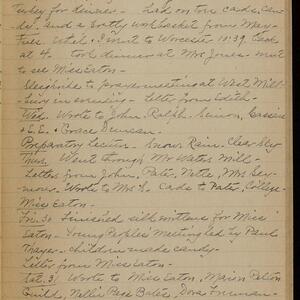 turkey for dinner - Had on tree cards, can-
dy. and a pretty work basket from May-
Tues. Ethel + I went to Worcester 10:39. Back
at 4. took dinner at Mrs. Jones. went
to see Miss Eaton -
Sleighride to prayer meeting at West Mill-
bury in evening - Letter from Edith -
Wed. Wrote to John, Ralph, Lemon, Cassie
+ S.E. + Grace Duncan -
Preparatory lecture - Snow. Rain. Clear sky
Thurs. Went through Mr Waters Mill -
Letters from John, Pate, Nettie, Mrs. Sey-
mour. Wrote to Mrs S. Cards to Pate, College -
Miss Eaton -
Fri. 30 Finished silk mittens for Miss
Eaton - Young People's meeting led by Paul
Thayer - children made candy -
Letter from Miss Eaton -
Sat. 31 Wrote to Miss Eaton, Marion Pelton
Guilds, Nellie Page Bates, Dora Freeman -